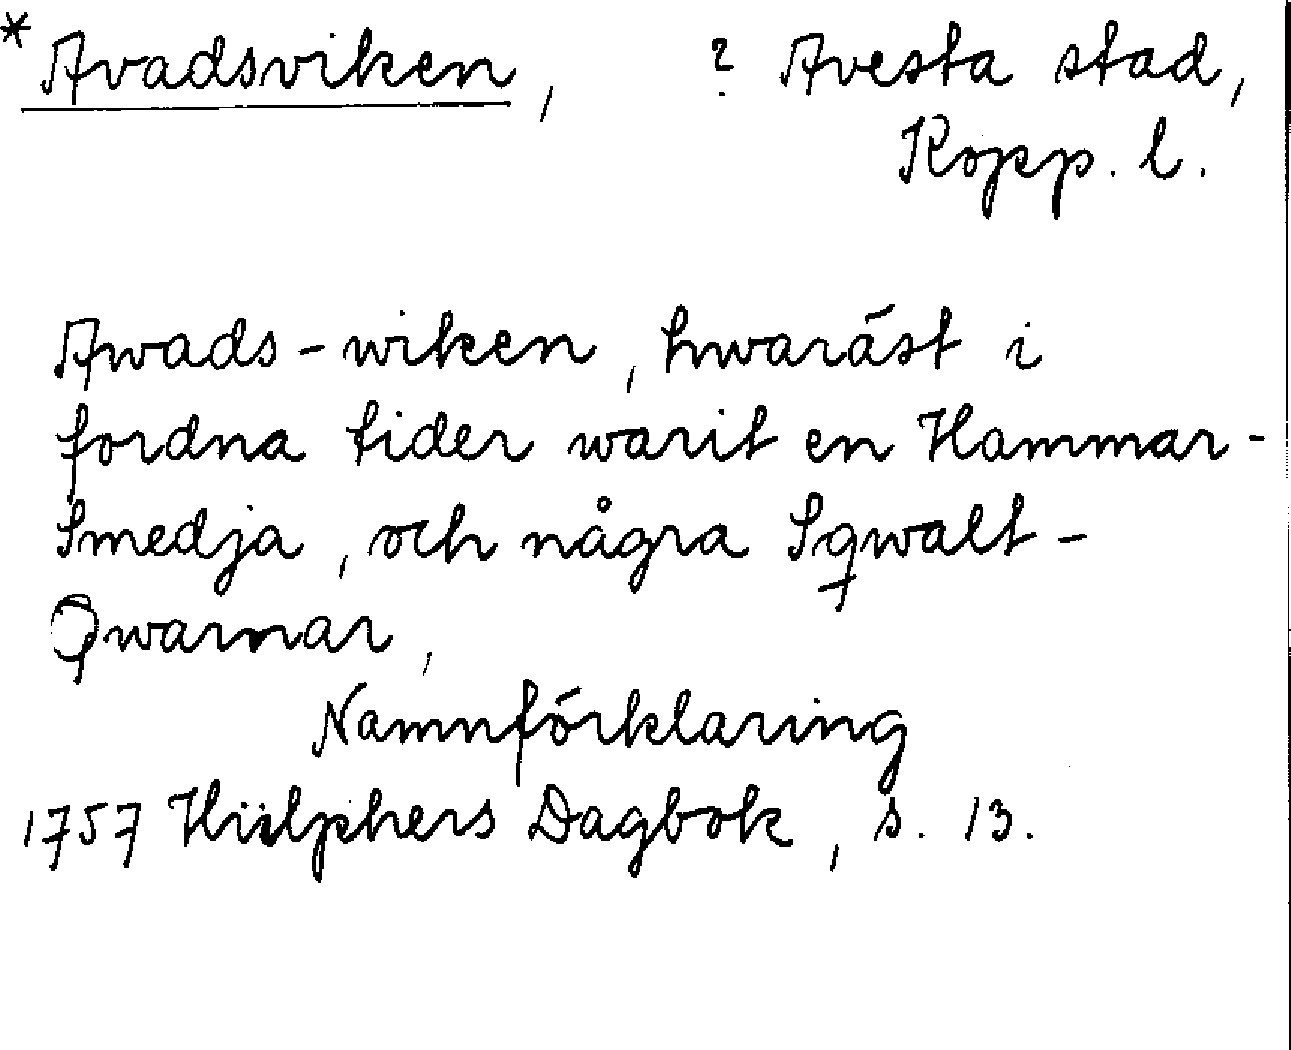 * Avadsviken, ? Avesta stad,
Kopp. l.
Awads-wiken, hwaräst i
fordna tider warit en Hammar-
Smedja, och några Sqwalt-
Qwarnar,
Namnförklaring
1757 Hülphers Dagbok, s. 13.